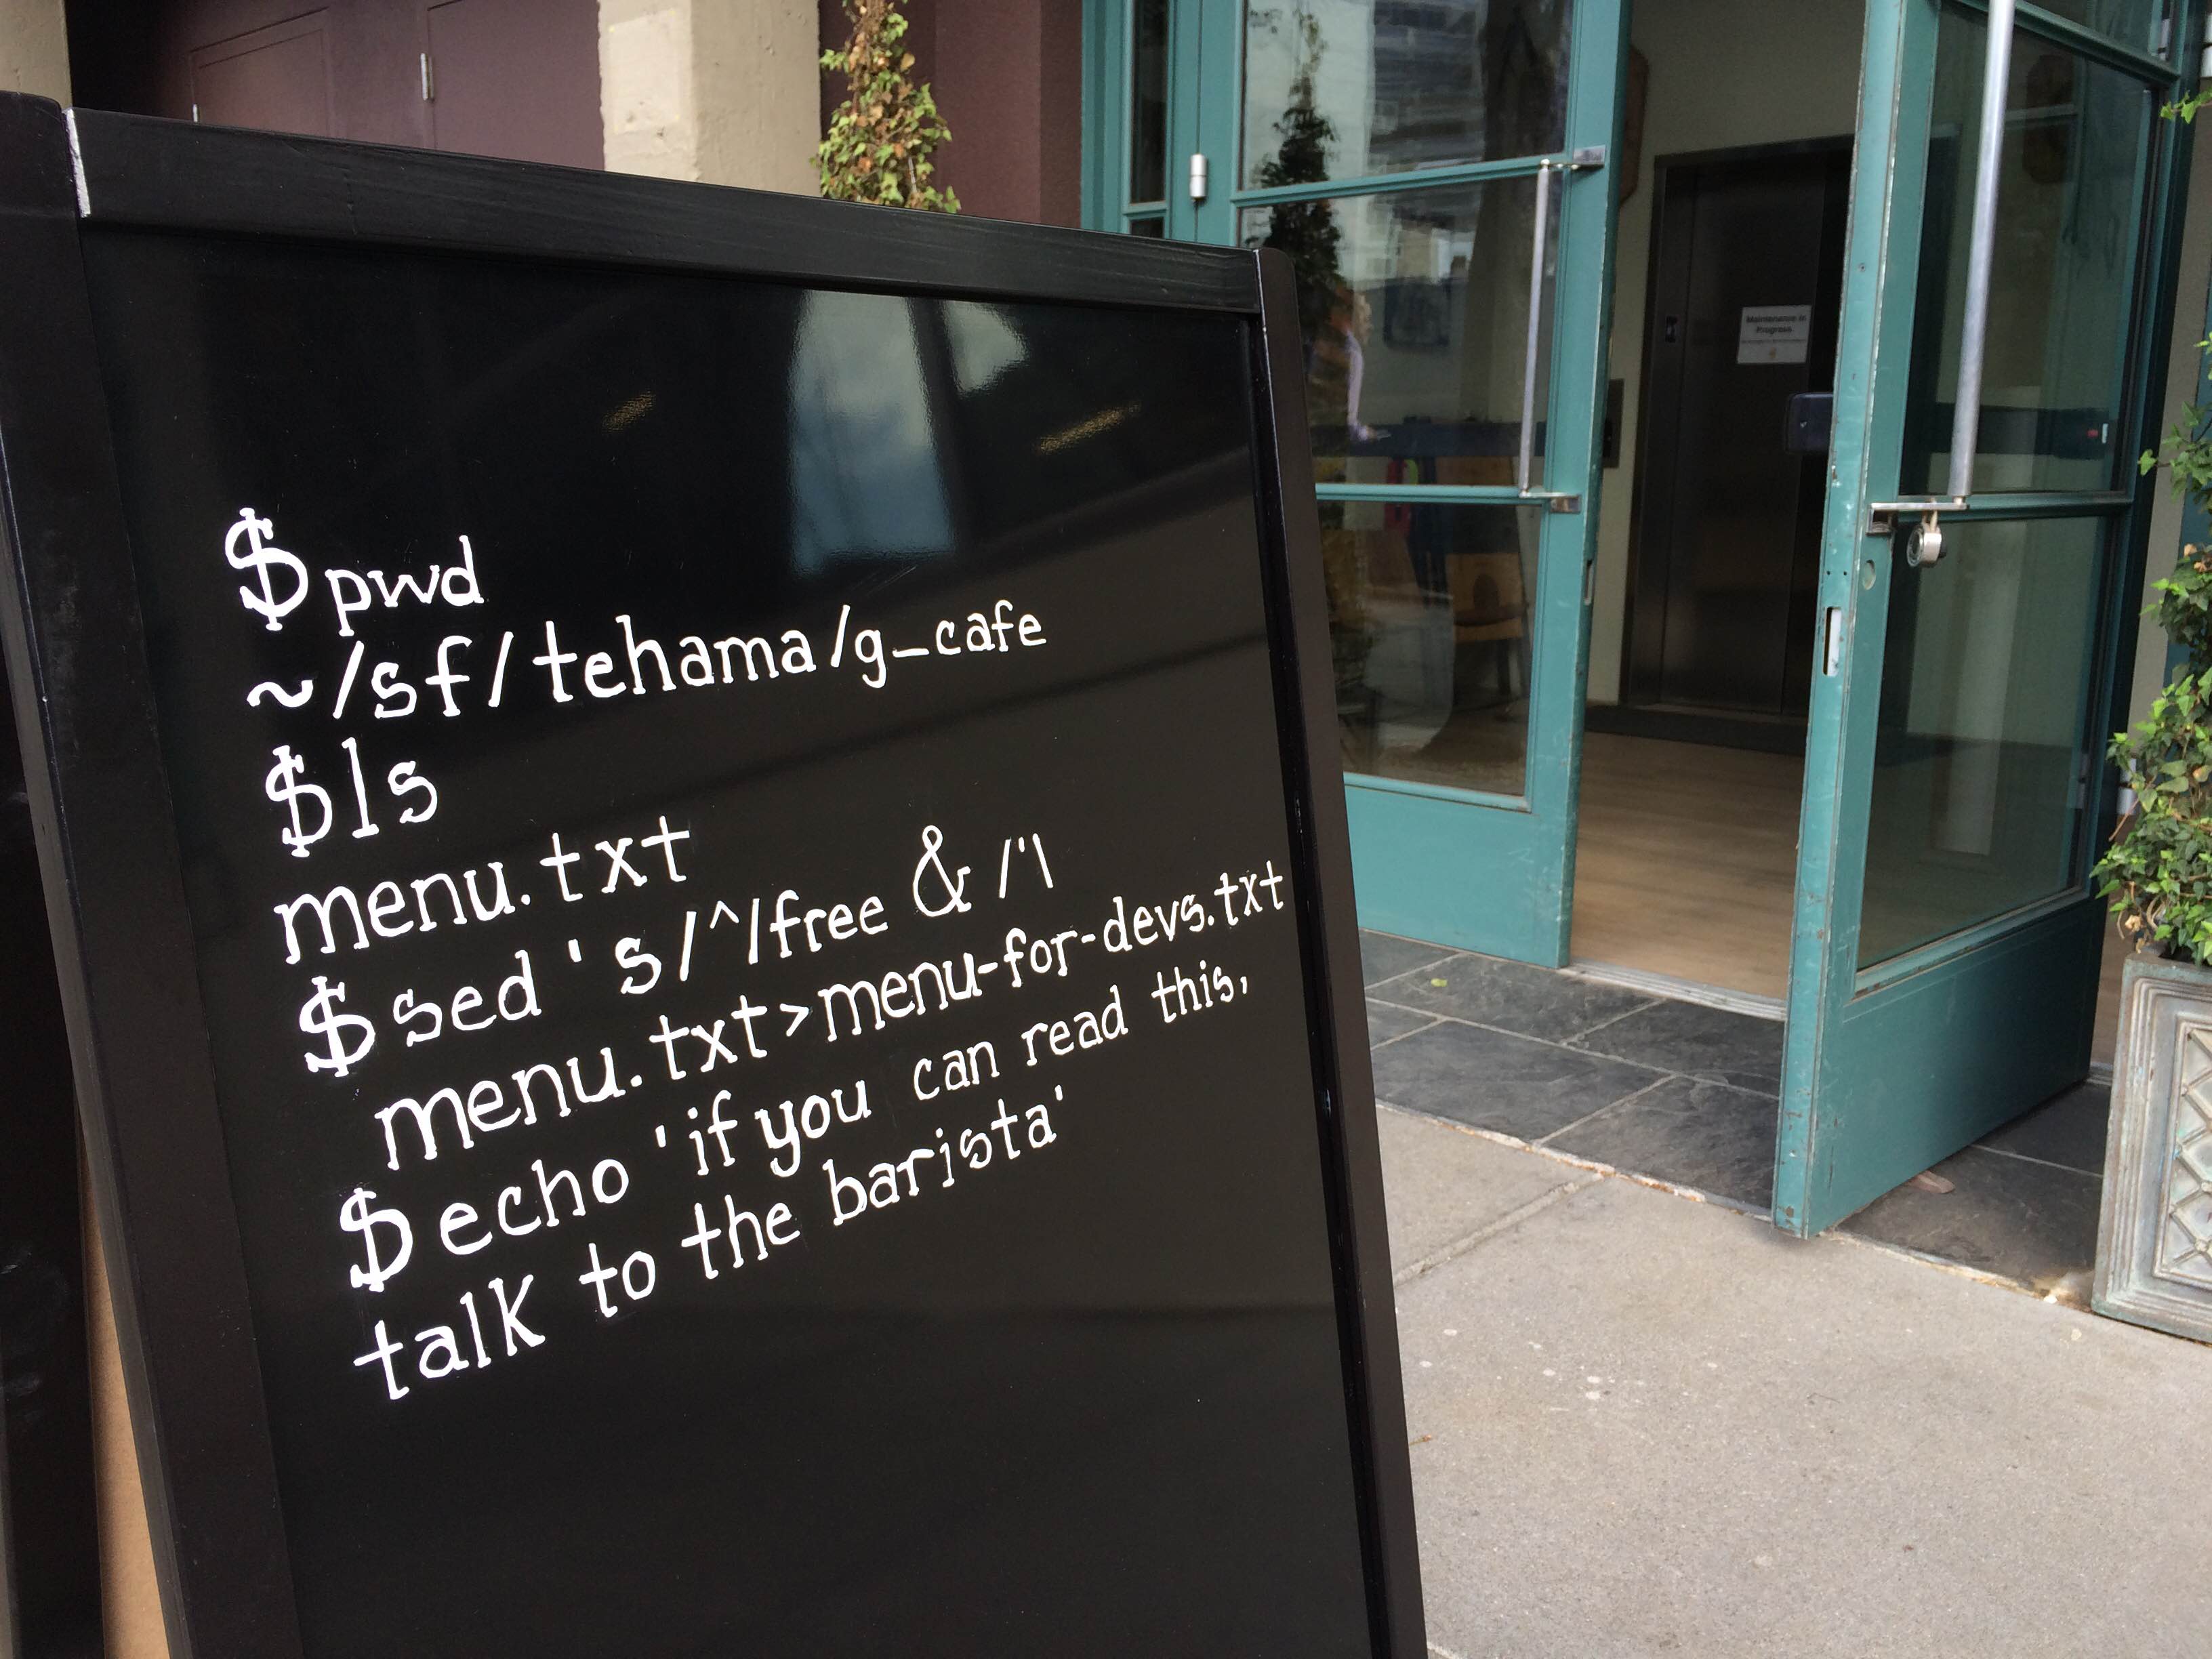 $ pwd
~/sf/tehama/g_cafe
$ ls
menu.txt
$ sed 's/^/free & /'\
menu.txt>menu-for-devs.txt
$ echo 'if you can read this,
talk to the barista'
Maintenance in
Progress